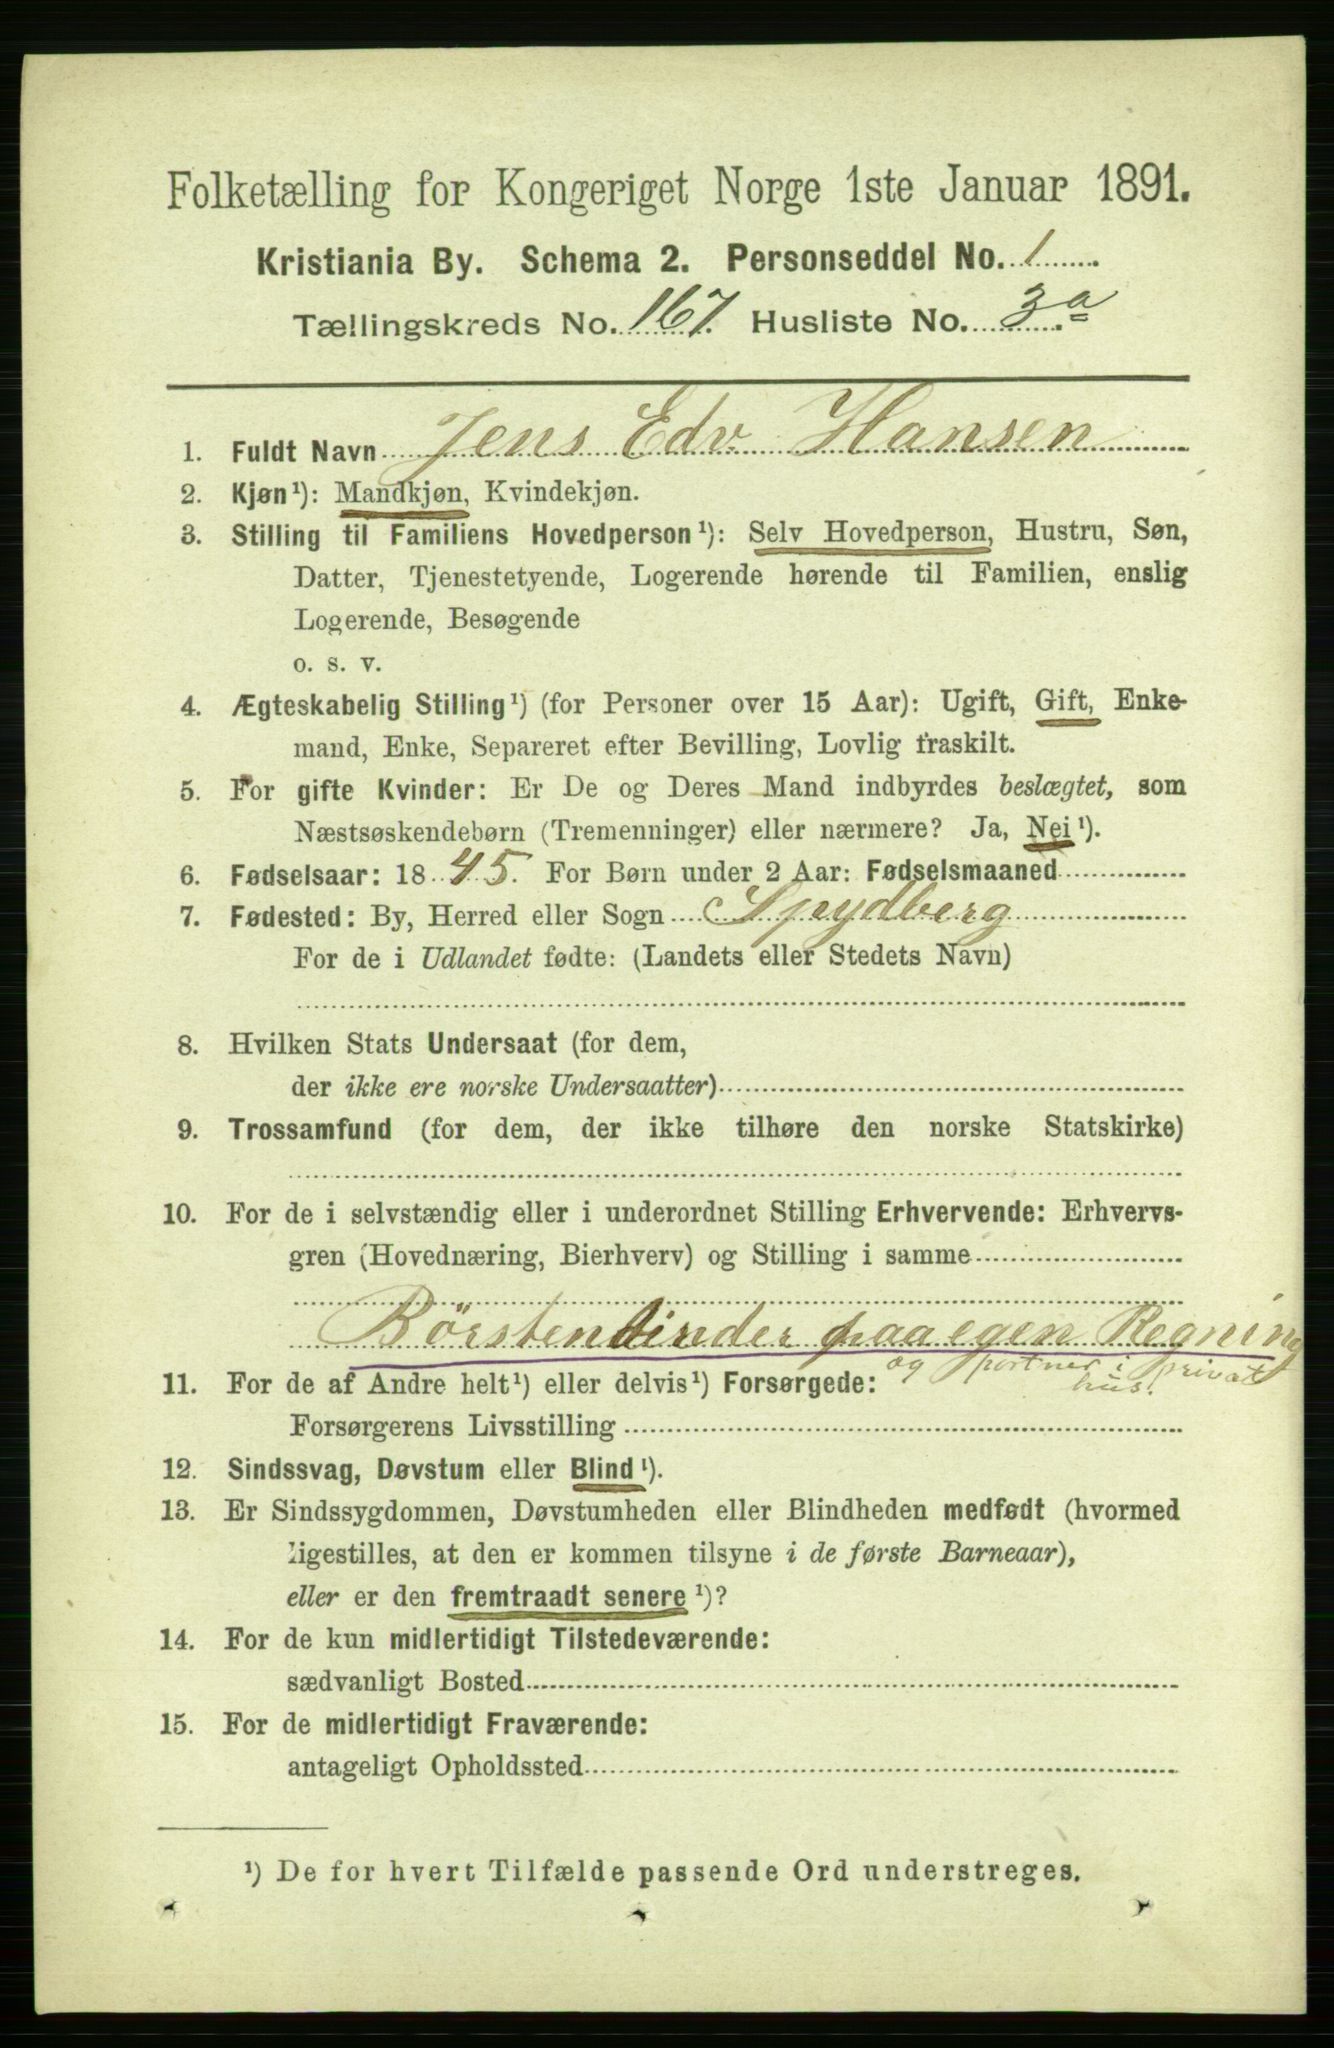 Folketælling for Kongeriget Norge 1ste Januar 1891.
Kristiania By. Schema 2. Personseddel No. 1
Tællingskreds No. 167. Husliste No. 3a
1. Fuldt Navn Jens Edv. Hansen
2. Kjøn¹): Mandkjøn, Kvindekjøn.
3. Stilling til Familiens Hovedperson¹): Selv Hovedperson, Hustru, Søn,
Datter, Tjenestetyende, Logerende hørende til Familien, enslig
Logerende, Besøgende
o. s. v.
4. Ægteskabelig Stilling¹) (for Personer over 15 Aar): Ugift, Gift, Enke-
mand, Enke, Separeret efter Bevilling, Lovlig fraskilt.
5. For gifte Kvinder: Er De og Deres Mand indbyrdes beslægtet, som
Næstsøskendebørn (Tremenninger) eller nærmere? Ja, Nei¹).
6. Fødselsaar: 1845. For Børn under 2 Aar: Fødselsmaaned
7. Fødested: By, Herred eller Sogn Spydberg
For de i Udlandet fødte: (Landets eller Stedets Navn)
8. Hvilken Stats Undersaat (for dem,
der ikke ere norske Undersaatter)
9. Trossamfund (for dem, der ikke tilhøre den norske Statskirke)
10. For de i selvstændig eller i underordnet Stilling Erhvervende: Erhvervs-
gren (Hovednæring, Bierhverv) og Stilling i samme
Börstenbinder paa egen Regning
og portner i privat
hus.
11. For de af Andre helt¹) eller delvis¹) Forsørgede:
Forsørgerens Livsstilling
12. Sindssvag, Døvstum eller Blind¹).
13. Er Sindssygdommen, Døvstumheden eller Blindheden medfødt (hvormed
ligestilles, at den er kommen tilsyne i de første Barneaar),
eller er den fremtraadt senere¹)?
14. For de kun midlertidigt Tilstedeværende:
sædvanligt Bosted
15. For de midlertidigt Fraværende:
antageligt Opholdssted
¹) De for hvert Tilfælde passende Ord understreges.